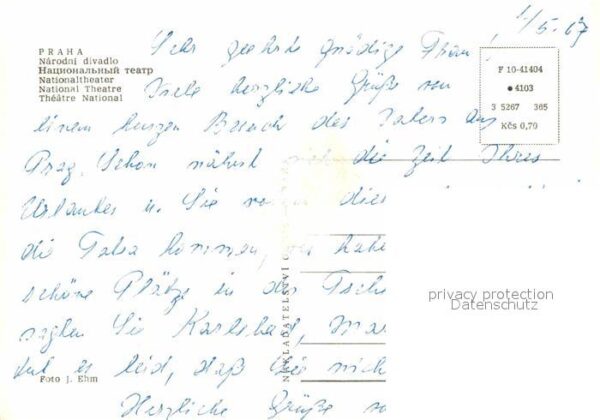 1/5.67
PRAHA
Národní divadlo
Национальный театр
Nationaltheater
National Theatre
Théâtre National
F 10-41404
4103
3 5267 365
Kčs 0,70
Sehr geehrte gnädige Frau,
Viele herzliche Grüße von
einem kurzen Besuch des Vaters aus
Prag. Schon nähert sich die Zeit Ihres
Urlaubes u. Sie dies
die Tatra kommen,
schöne Plätze in der Tsche
Sie Karlsbad, Mar
tut es leid, daß Sie nich
Herzliche Grüße
NAKLADATELSTVÍ
Foto J. Ehm
privacy protection
Datenschutz